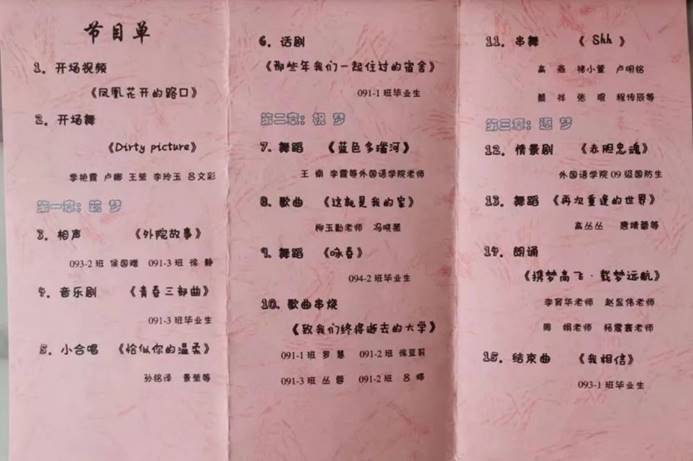 节目单
1、开场视频
《凤凰花开的路口》
2、开场舞
《Dirty picture》
李艳霞 卢娜 王莹 李玲玉 吕文彩
第一章：筑 梦
3、相声 《外院故事》
093-2 班 徐国赠 091-3 班 徐 静
4、音乐剧 《青春三部曲》
091-3 班毕业生
5、小合唱 《恰似你的温柔》
孙铭泽 景莹等
6、话剧
《那些年我们一起住过的宿舍》
091-1 班毕业生
第二章：祝 梦
7、舞蹈 《蓝色多瑙河》
王 南 李霞等外国语学院老师
8、歌曲 《这就是我的家》
柳玉勤老师 冯晓菡
9、舞蹈 《咏春》
094-2 班毕业生
10、歌曲串烧
《致我们终将逝去的大学》
091-1 班 罗 慧 091-2 班 徐亚莉
091-3 班 丛 蓉 091-2 班 吕 娜
11、串舞 《 Shh 》
高 燕 褚小萱 卢明铭
祥 张 琨 程传辰等
第三章：逐 梦
12、情景剧 《赤胆忠魂》
外国语学院 09 级国防生
13、舞蹈 《再次重逢的世界》
高丛丛 等
14、朗诵
《携梦高飞·载梦远航》
李育华老师 赵显伟老师
周 娟老师 杨震寰老师
15、结束曲 《我相信》
093-1 班毕业生